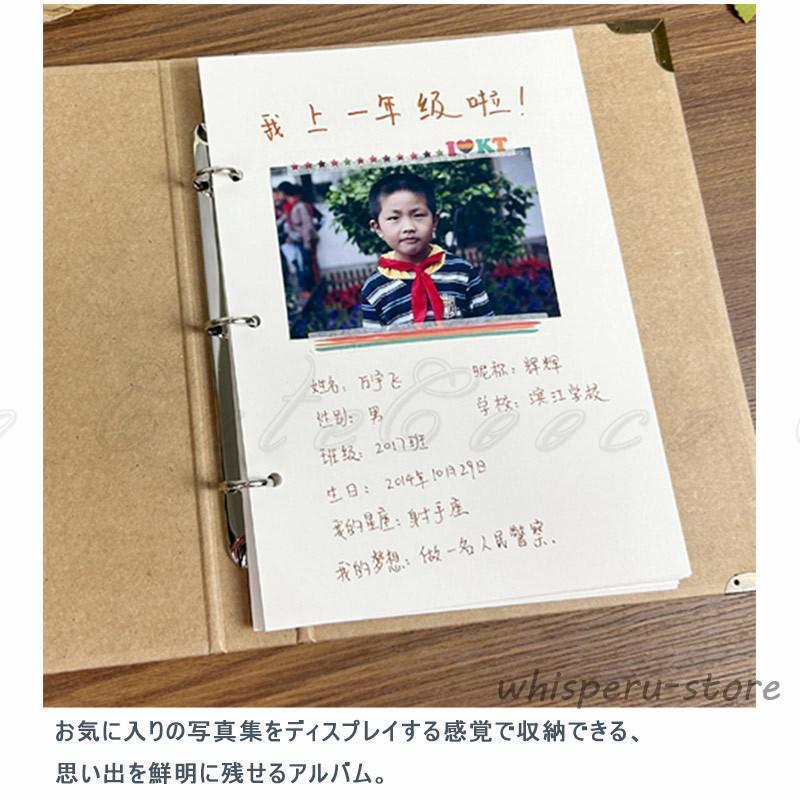 我上一年级啦!
I KT
姓名:万宇飞 昵称:辉辉
性别:男 学校:滨江学校
班级:2017班
生日:2014年10月29日
我的星座:射手座
我的梦想:做一名人民警察.
whisperu-store
お気に入りの写真集をディスプレイする感覚で収納できる、
思い出を鮮明に残せるアルバム。